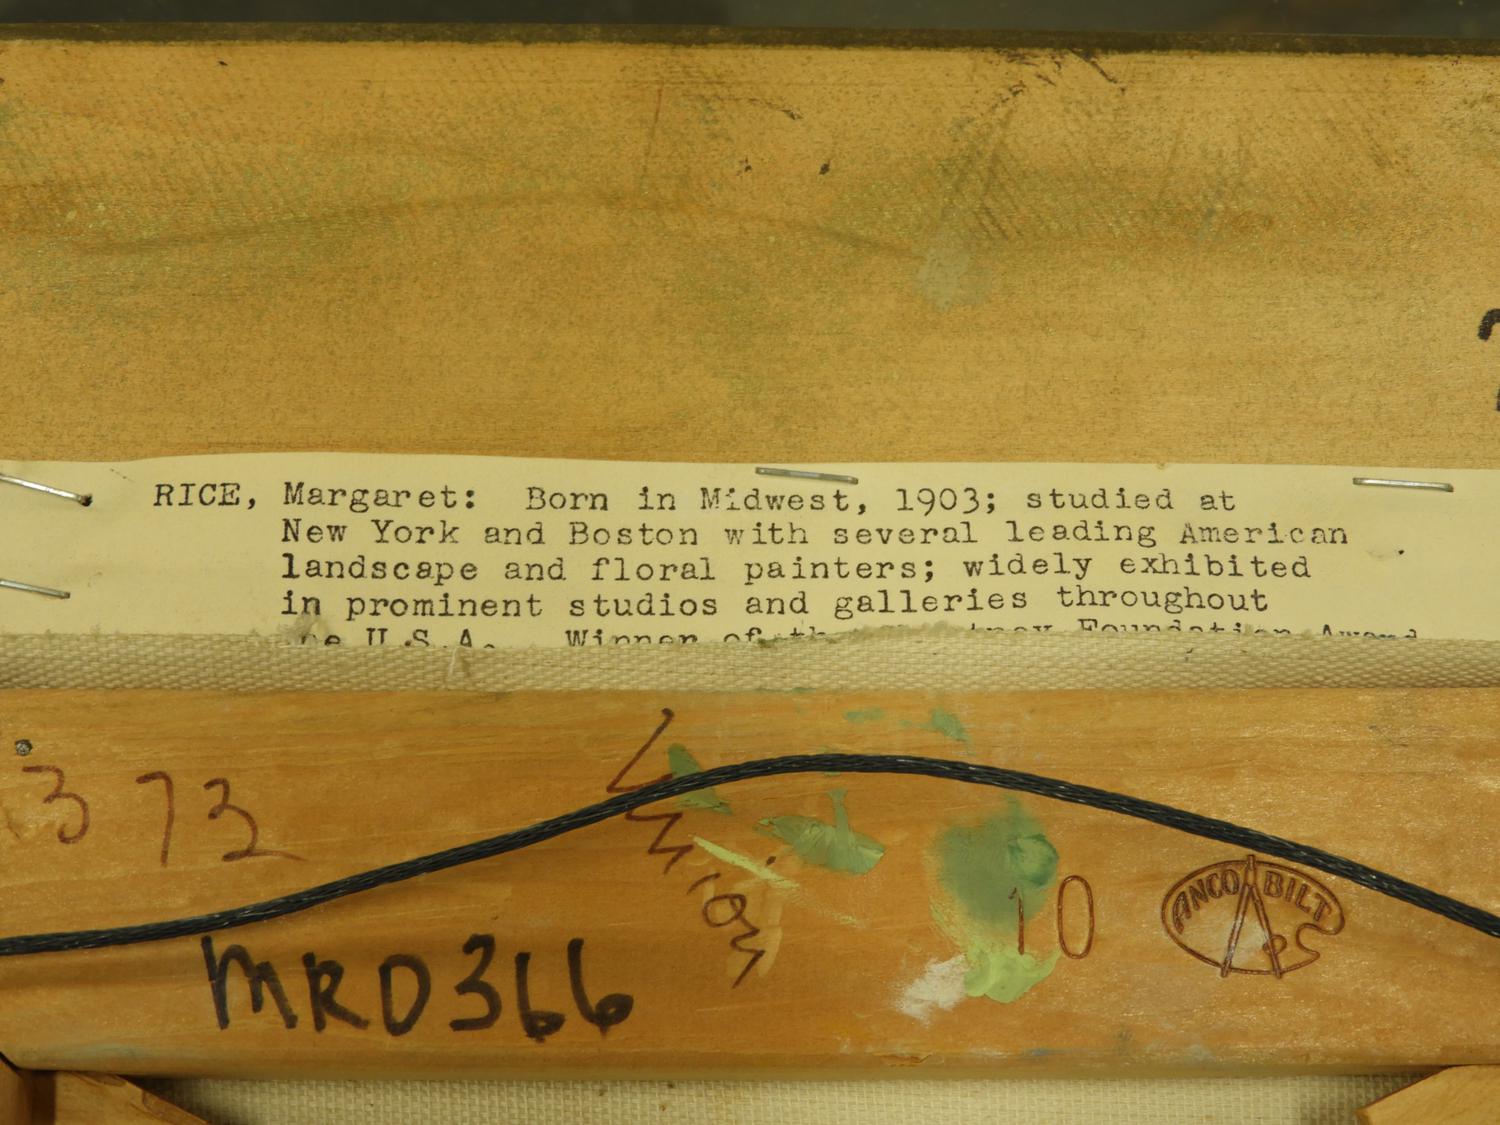 RICE, Margaret: Born in Midwest, 1903; studied at
New York and Boston with several leading American
landscape and floral painters; widely exhibited
in prominent studios and galleries throughout
the U.S.A. Winner of the Foundation Award
373
10
ANCO BILT
MRD366